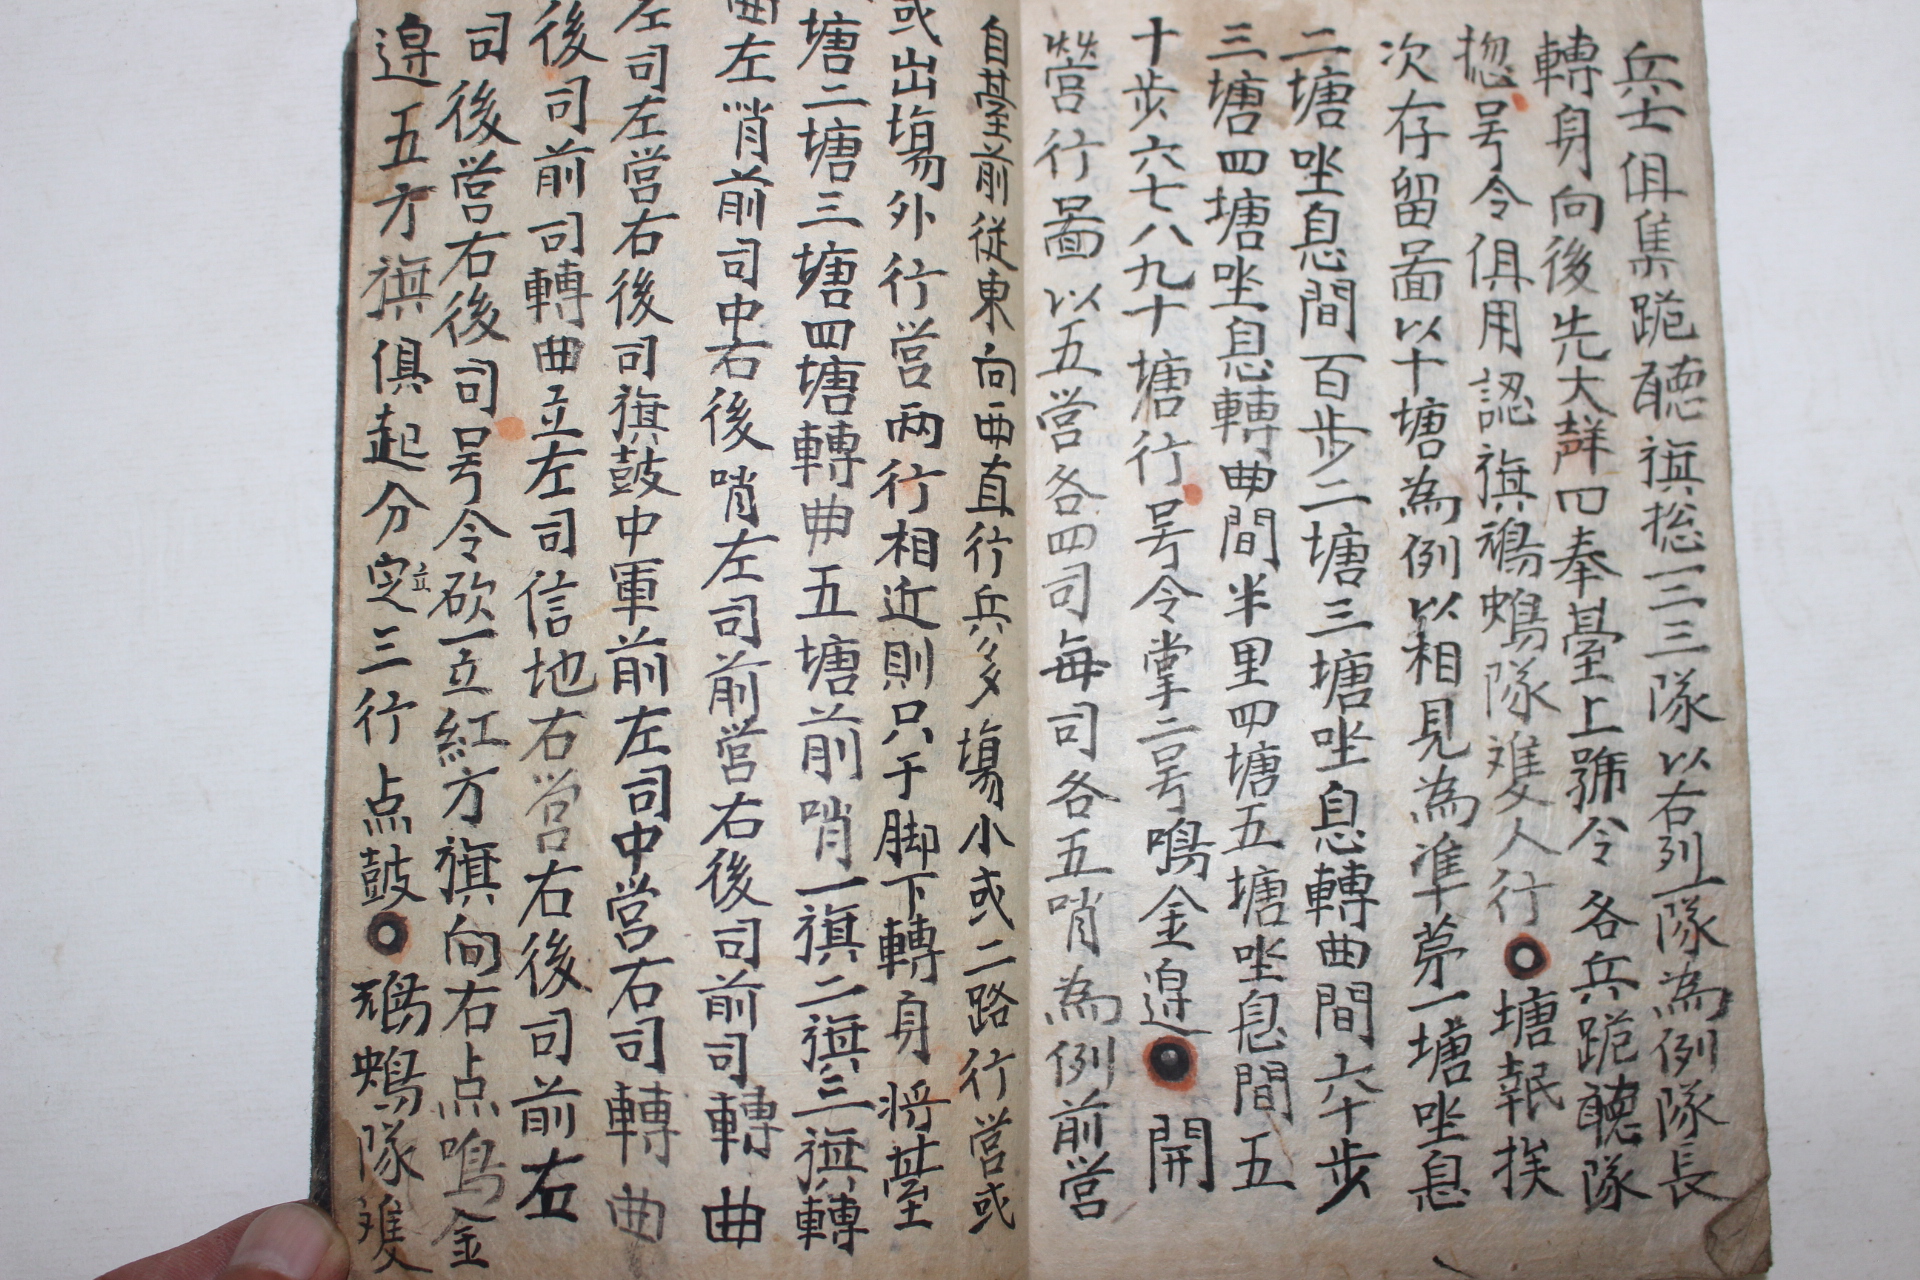 兵士俱集跪聽旗摠一二三隊以右列一隊為例隊長
轉身向後先大群四奉臺上號令各兵跪聽隊
摠号令俱用認旗鴉鴂隊雙人行○塘報挨
次存留啚以十塘為例以相見為準苐一塘坐息
二塘坐息間百步二塘三塘坐息轉曲間六十步
三塘四塘坐息轉曲間半里四塘五塘坐息間五
十步六七八九十塘行号令掌二号鳴金邉○開
營行啚以五营各四司每司各五哨為例前营
自臺前從東向西直行兵多塲小或二路行营或
或出塲外行营兩行相近則只于脚下轉身将䑓
塘二塘三塘四塘轉曲五塘前哨一旗二旗三旗轉
曲左哨前司中右後哨左司前营右後司前司轉曲
左司左营右後司旗鼓中軍前左司中营右司轉曲
後司前司轉曲立左司信地右营右後司前右
司後营右後司号令砍立紅方旗向右点鳴金
邉五方旗俱起分定立三行点鼓○鴉鴂隊雙